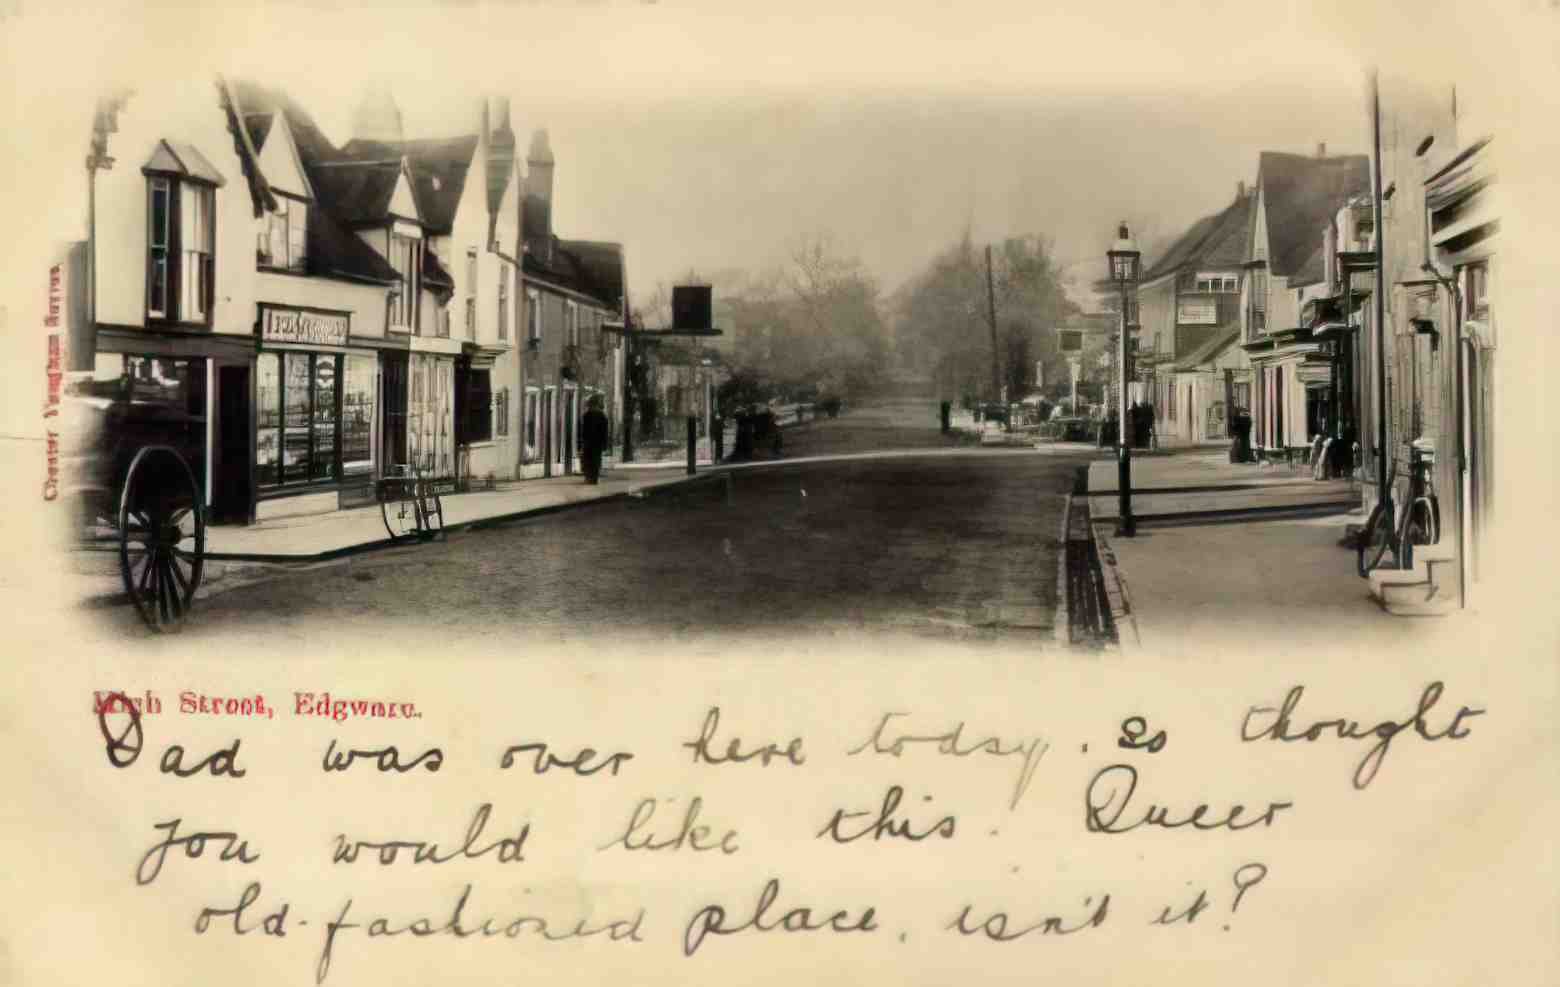 High Street, Edgware.
Dad was over here today. So thought
you would like this. Queer
old-fashioned place, isn't it?